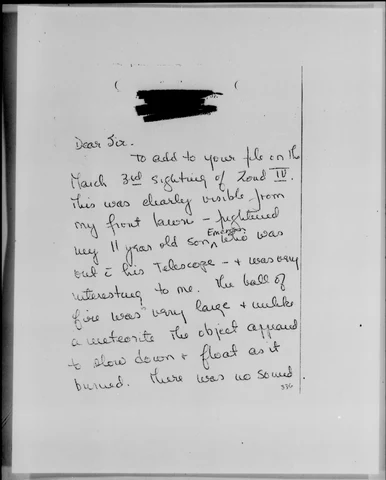 Dear Sir.
To add to your file on the
March 3rd sighting of Zond IV.
This was clearly visible from
my front lawn - frightened
my 11 year old son, who was
out c̄ his Telescope - + was very
interesting to me. The ball of
fire was very large + unlike
a meteorite the object appeared
to slow down + float as it
burned. There was no sound
336